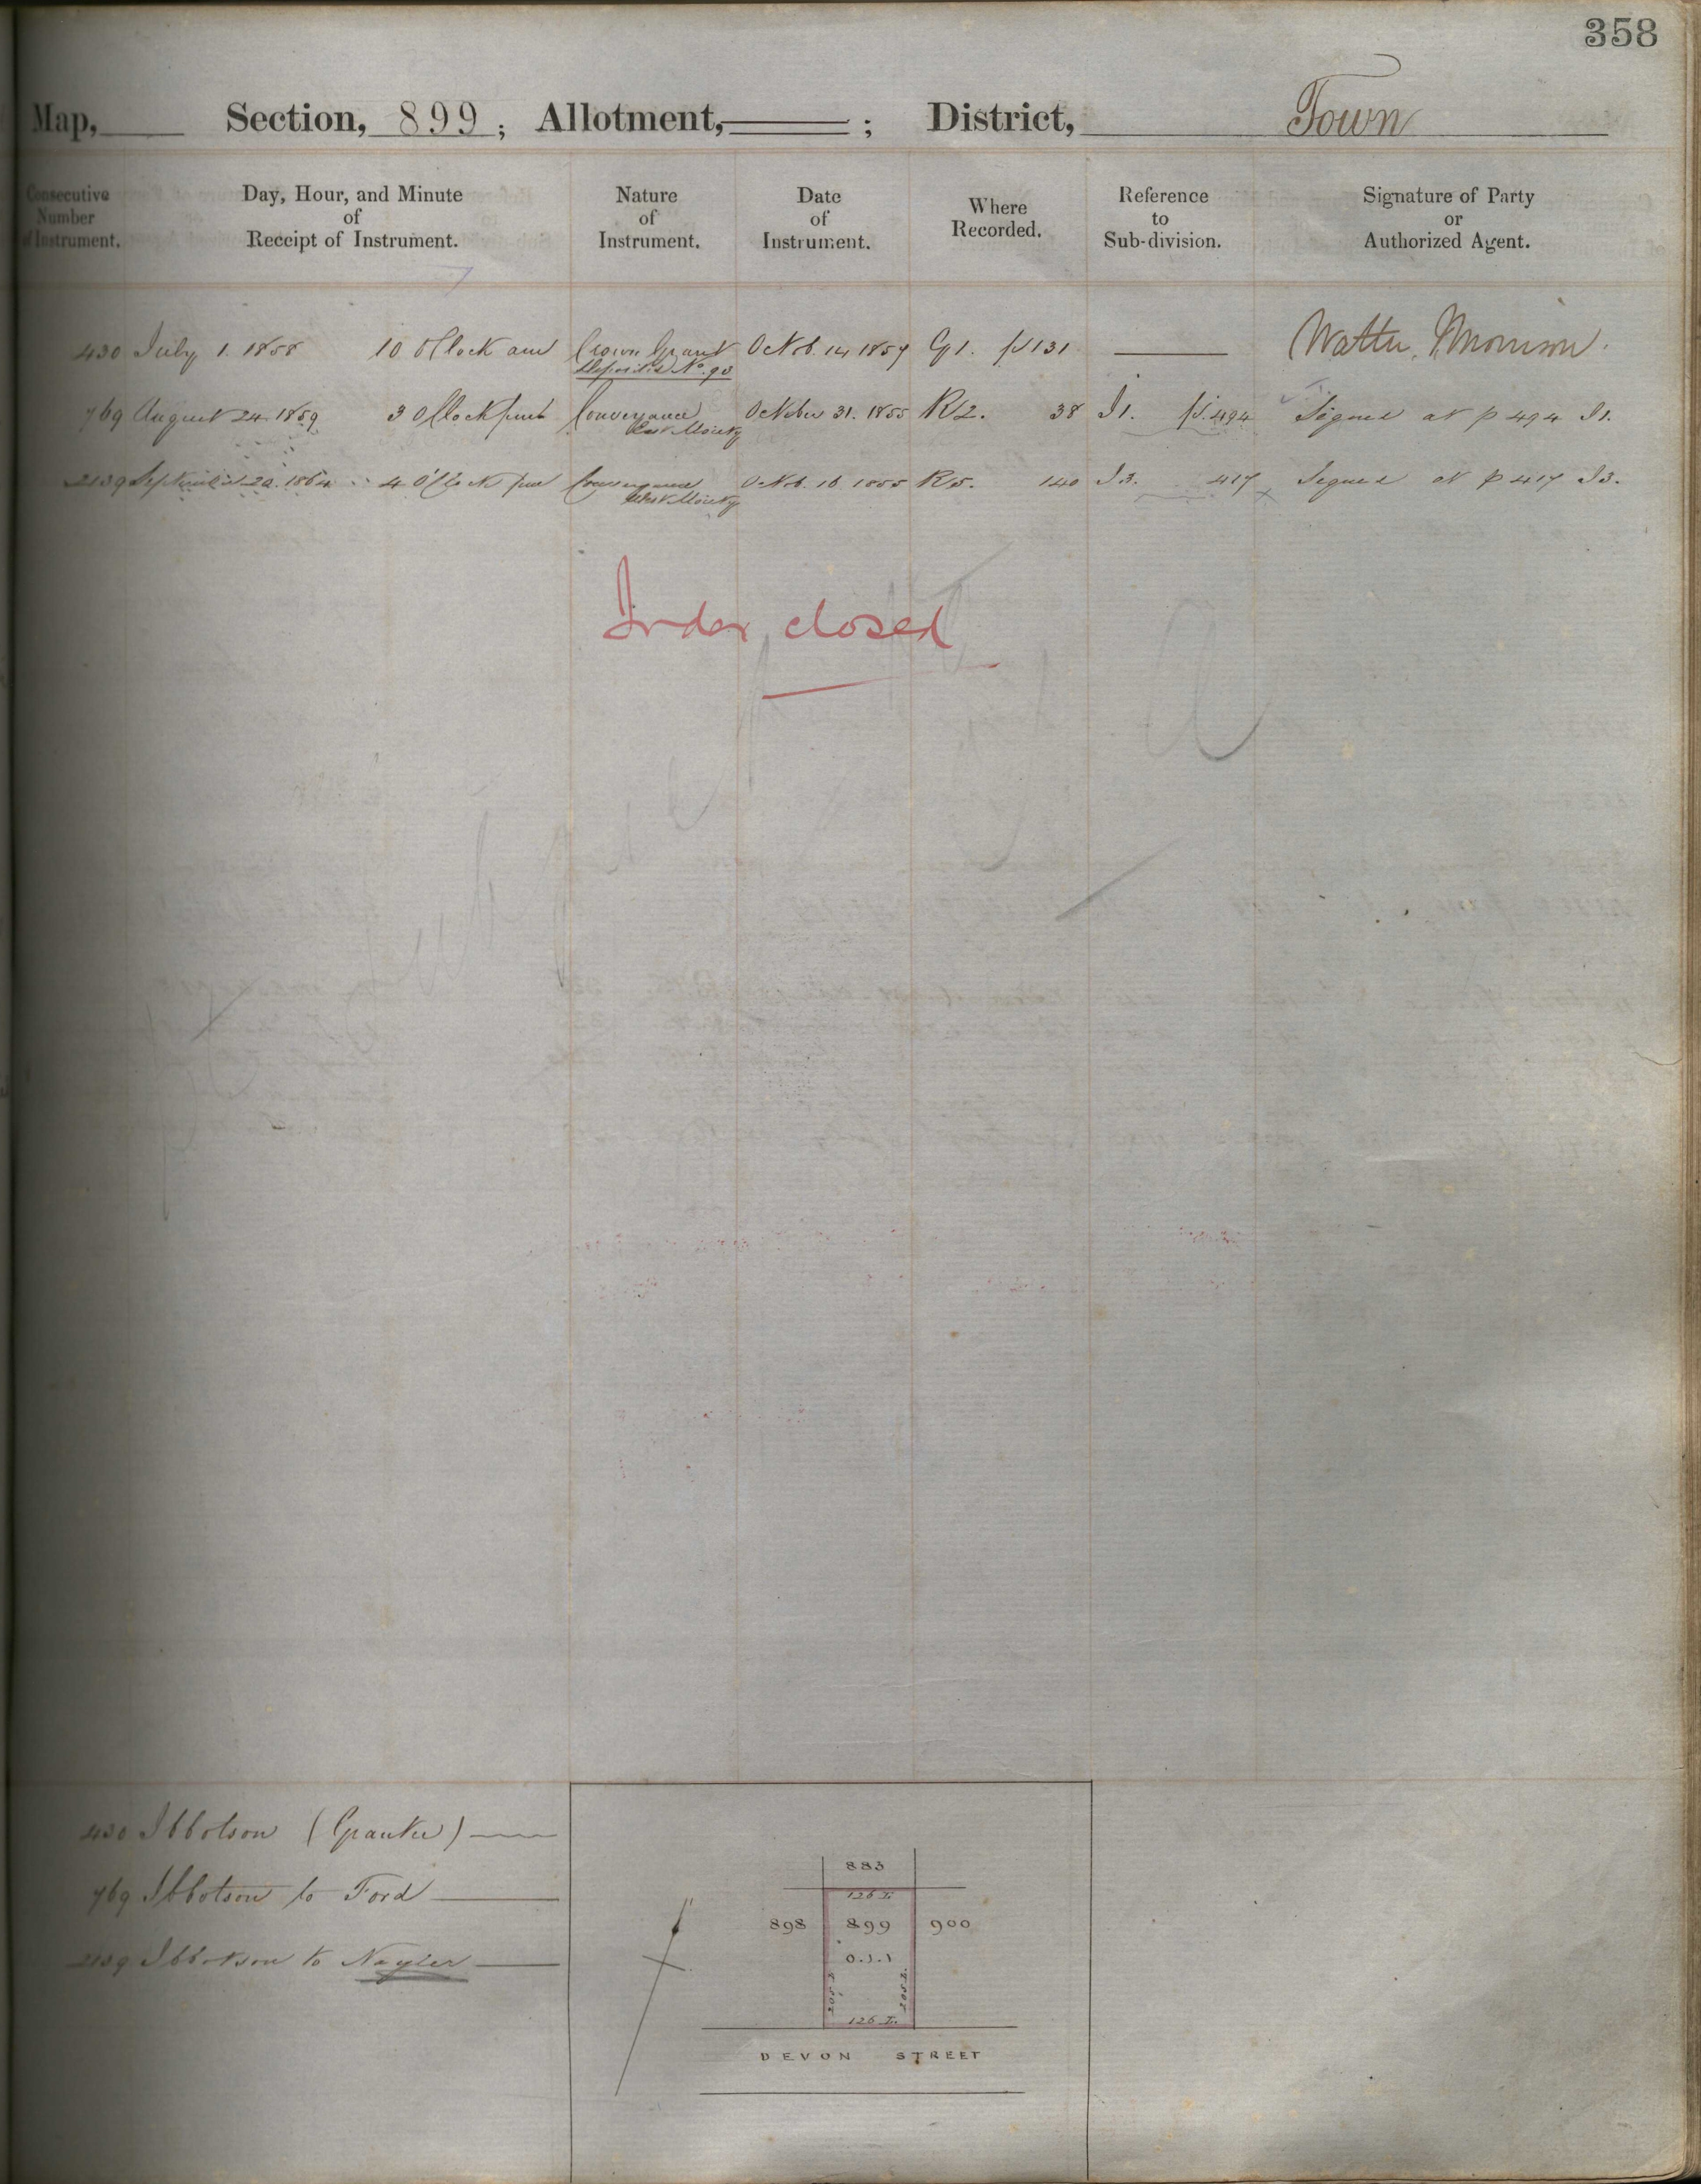 358
Map, Section, 899; Allotment, ; District, Town
Consecutive Number of Instrument.
Day, Hour, and Minute of Receipt of Instrument.
Nature of Instrument.
Date of Instrument.
Where Recorded.
Reference to Sub-division.
Signature of Party or Authorized Agent.
430 July 1. 1858 10 O'Clock am Crown Grant Octob. 14 1857 G1. p 131 Walter Morrison.
Deposited No. 90
769 August 24. 1859 3 O'Clock pm Conveyance October 31. 1855 R2. 38 I1. p. 494 Signed at p 494 I1.
East Moiety
2139 September 20. 1864 4 O'Clock pm Conveyance Octob. 16 1855 R5. 140 I3. 417 Signed at p 417 I3.
West Moiety
Index closed
430 Ibbotson (Grantee)
769 Ibbotson to Ford
2139 Ibbotson to Nayler
883
126 L.
898 899 900
0.1.1
205 L. 205 L.
126 L.
DEVON STREET